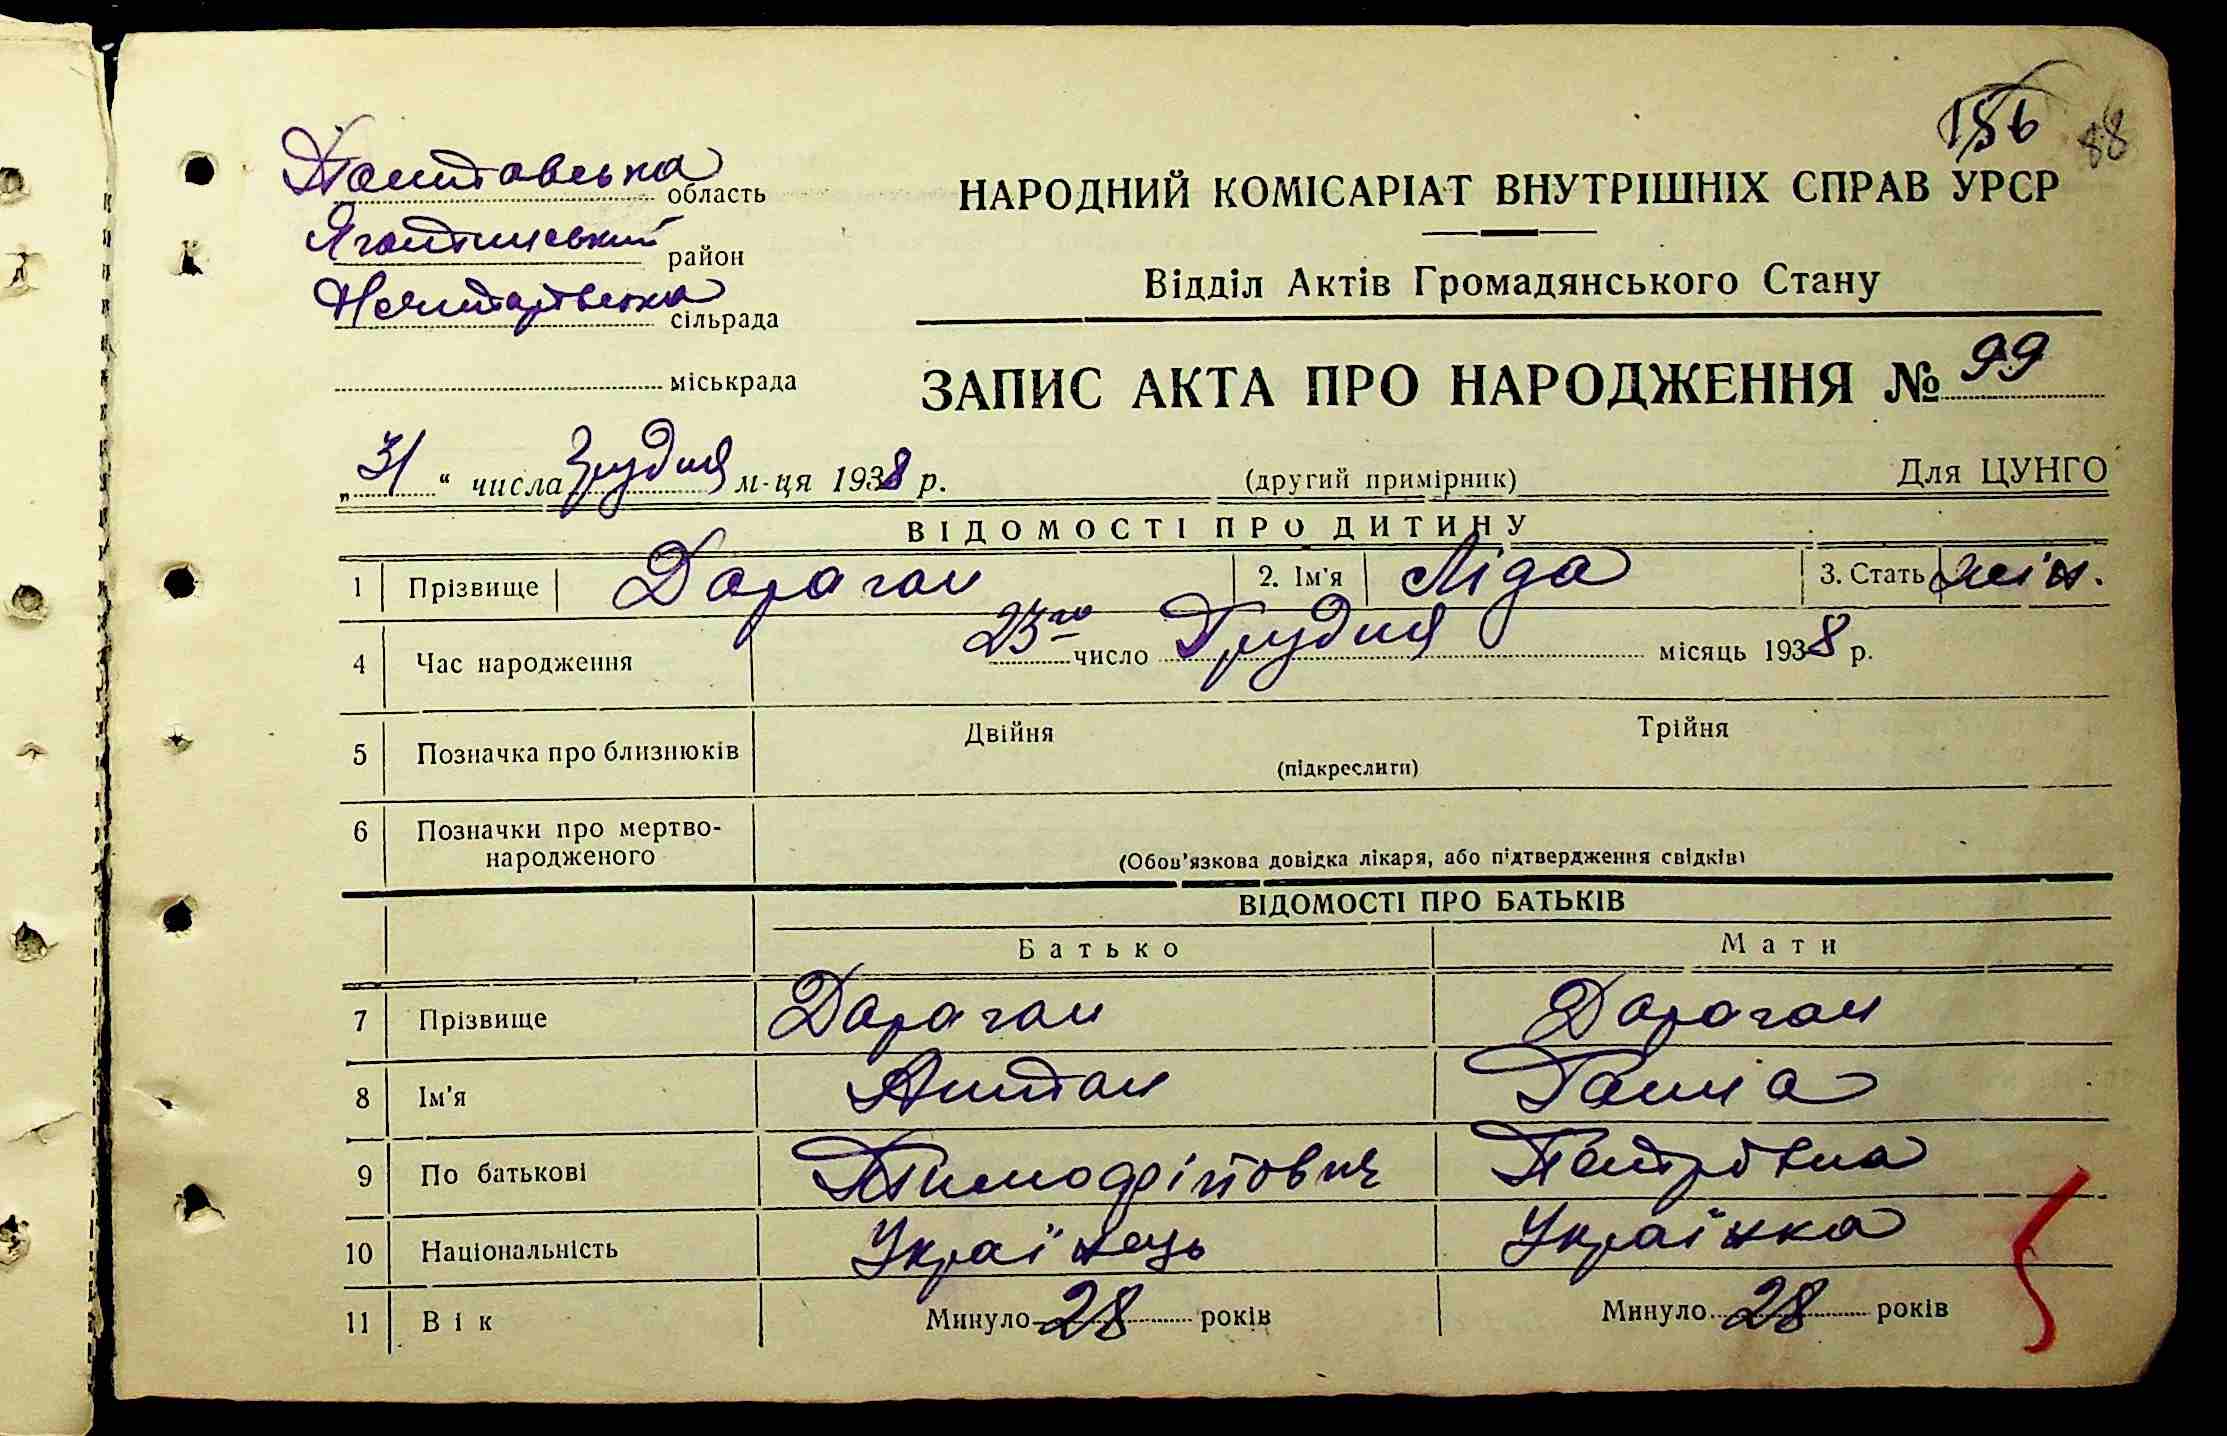 156 88
Полтавська область
Яготинський район
сільрада
міськрада
НАРОДНИЙ КОМІСАРІАТ ВНУТРІШНІХ СПРАВ УРСР
Відділ Актів Громадянського Стану
ЗАПИС АКТА ПРО НАРОДЖЕННЯ № 99
„31“ числа Грудня м-ця 1938 р. (другий примірник) Для ЦУНГО
ВІДОМОСТІ ПРО ДИТИНУ
1 Прізвище Дараган 2. Ім'я Ліда 3. Стать жін.
4 Час народження 23го число Грудня місяць 1938 р.
5 Позначка про близнюків Двійня Трійня
(підкреслити)
6 Позначки про мертво-
народженого
(Обов'язкова довідка лікаря, або підтвердження свідків)
ВІДОМОСТІ ПРО БАТЬКІВ
Батько Мати
7 Прізвище Дараган Дараган
8 Ім'я Антон Ганна
9 По батькові Тимофійович Петрівна
10 Національність Українець Українка
11 Вік Минуло 28 років Минуло 28 років